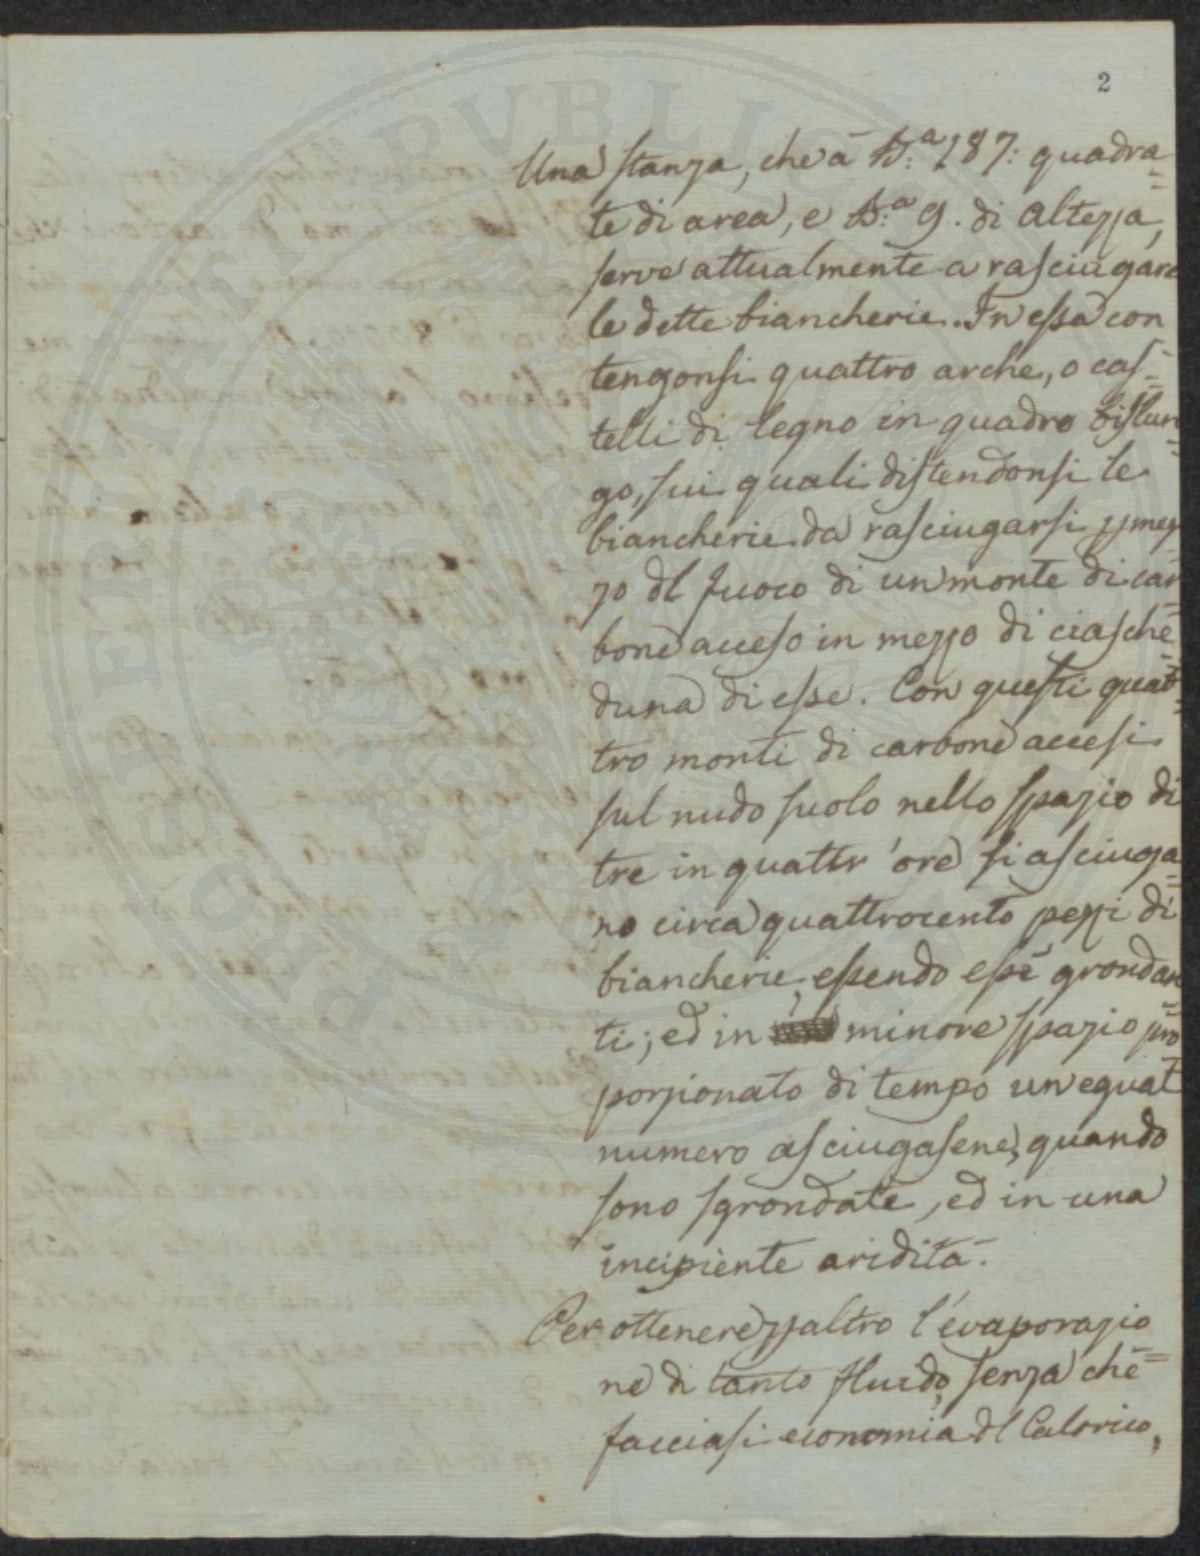 2
Una stanza, che à B.ª 187: quadra=
te di area, e B.ª 9. di altezza,
serve attualmente a rasciugare
le dette biancherie. In essa con
tengonsi quattro arche, o cas=
telli di legno in quadro bislun=
go, sui quali distendonsi le
biancherie da rasciugarsi p mez=
zo dl fuoco di un monte di car=
bone acceso in mezzo di ciasche=
duna di esse. Con questi quat=
tro monti di carbone accesi
sul nudo suolo nello spazio di
tre in quattr'ore si asciuga=
no circa quattrocento pezzi di
biancherie, essendo esse grondan=
ti; ed in minore spazio pro=
porzionato di tempo un egual
numero asciugasene, quando
sono sgrondate, ed in una
incipiente aridità.
Per ottenere ppaltro l'evaporazio=
ne di tanto fluido, senza che
facciasi economia dl Calorico,
PROPERITATI PVBLIC